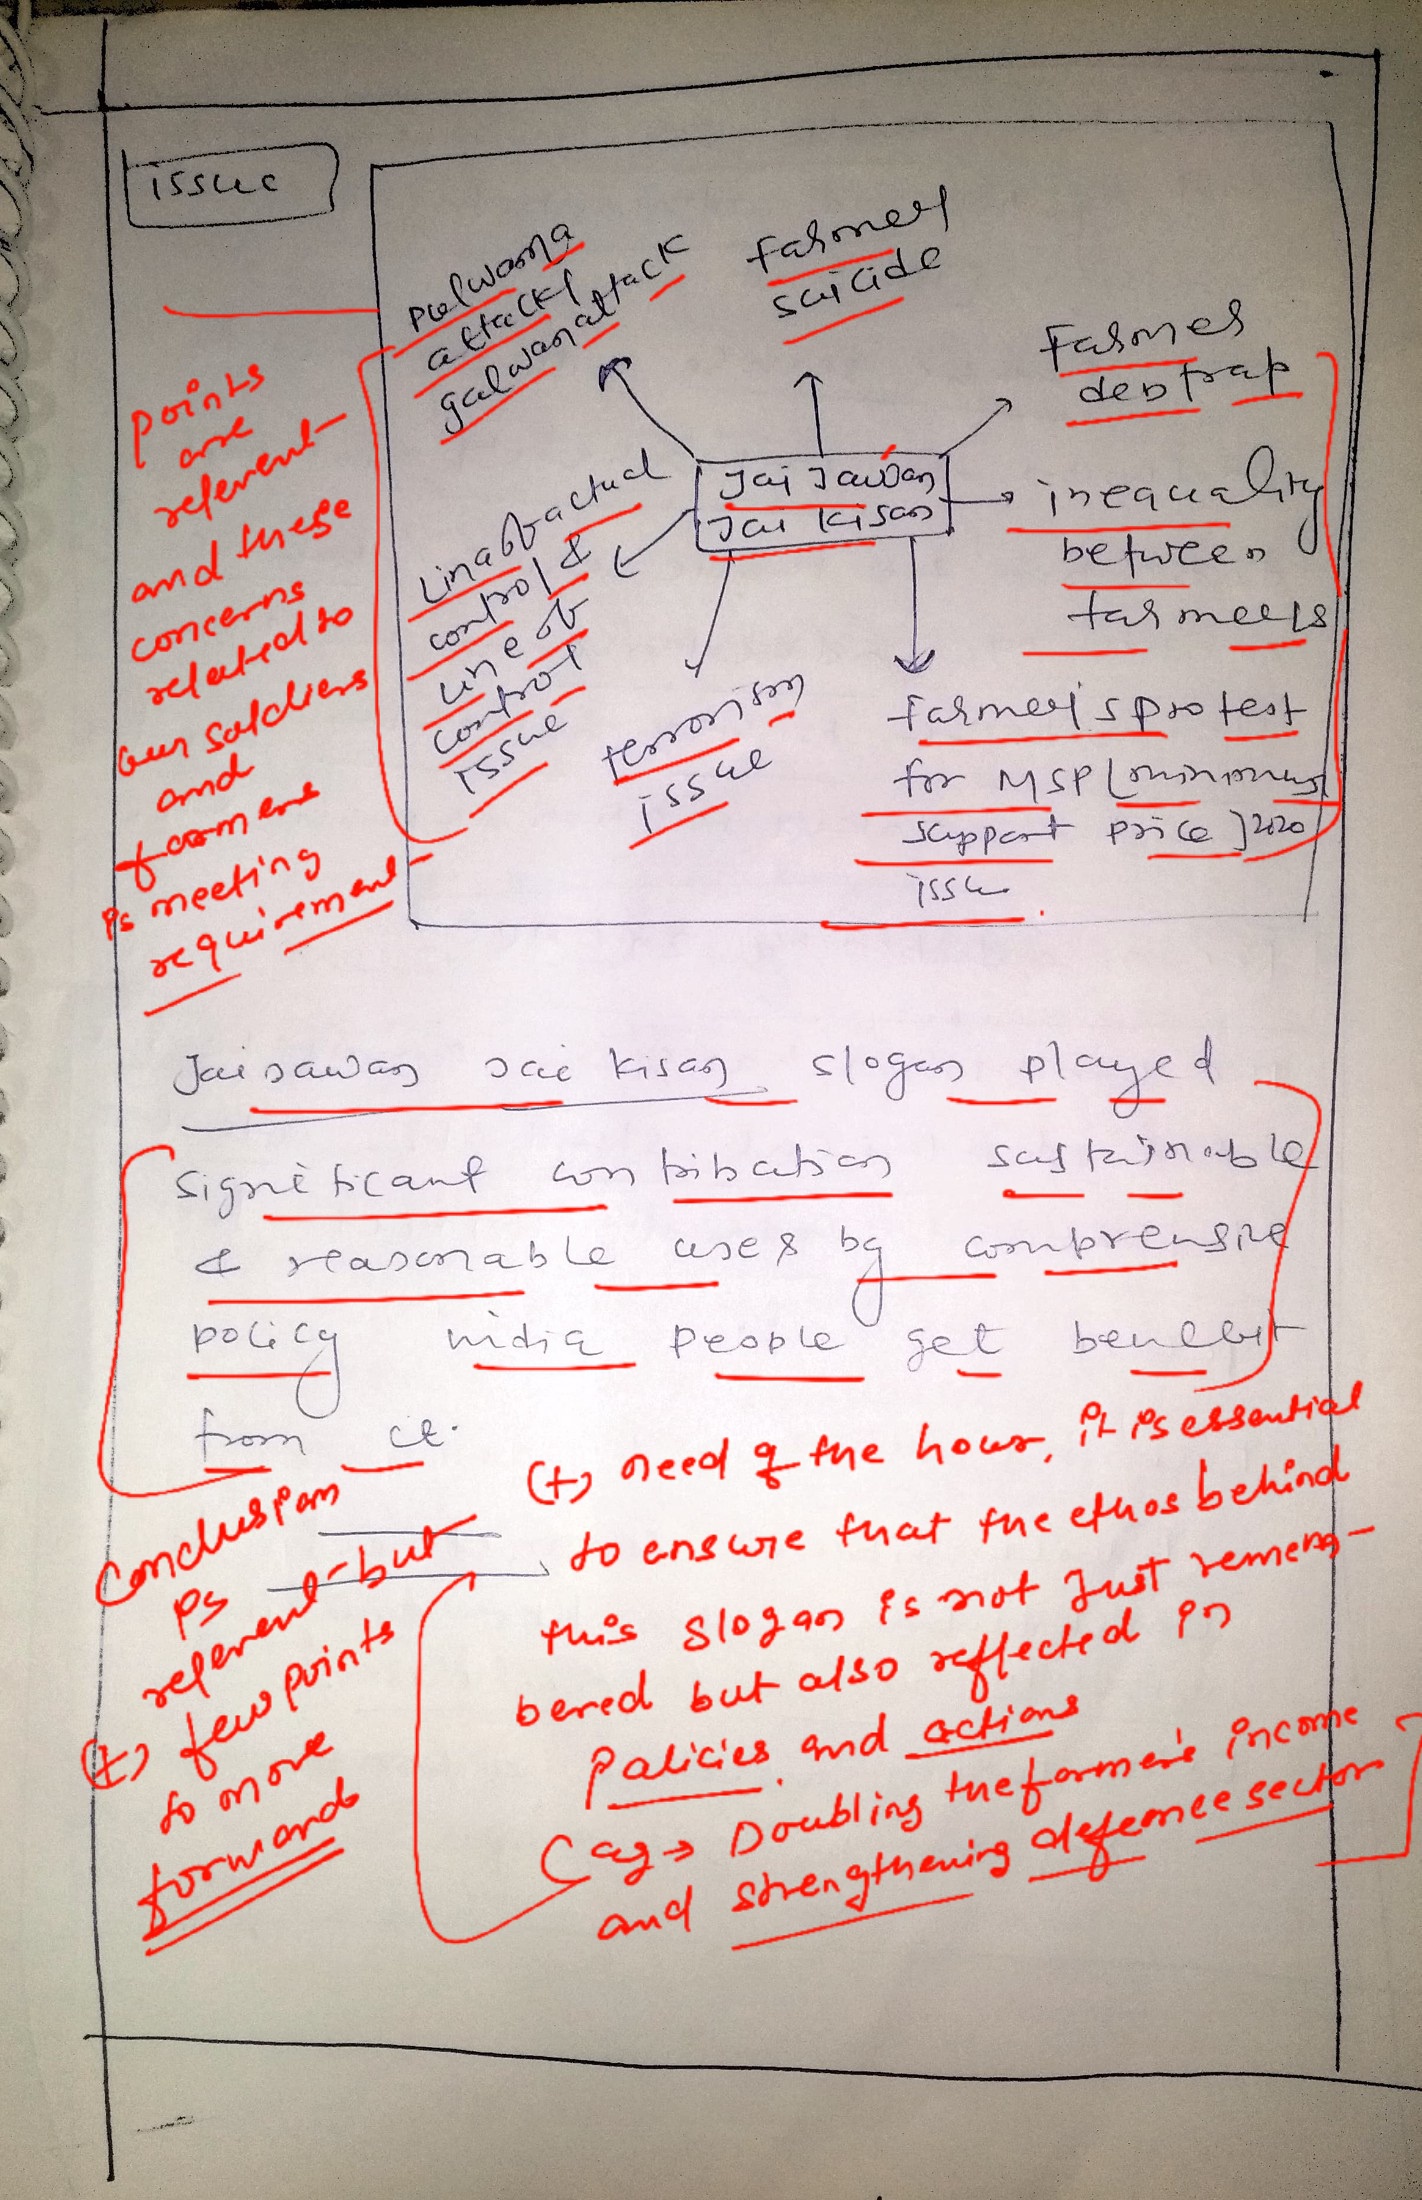 issue
pulwama
attack /
galwan attack
farmer
suicide
Farmer
deb trap
Jai Jawan
Jai kisan
inequality
between
farmeers
Line of actual
control &
line of
control
issue
terrorism
issue
farmer's protest
for MSP [minimum
support price] 2020
issue
points
are
relevent
and these
concerns
related to
our soldiers
and
farmers
is meeting
requirement
Jai Jawan Jai kisan slogan played
significant contribution sustainable
& reasonable uses by comprensive
policy india people get benefit
from it.
Conclusion
is
relevent but
(+) few points
to move
forward
(+) need of the hour, it is essential
to ensure that the ethos behind
this slogan is not Just remem-
bered but also reflected in
policies and actions
eg → Doubling the farmer's income
and strengthening defence sector